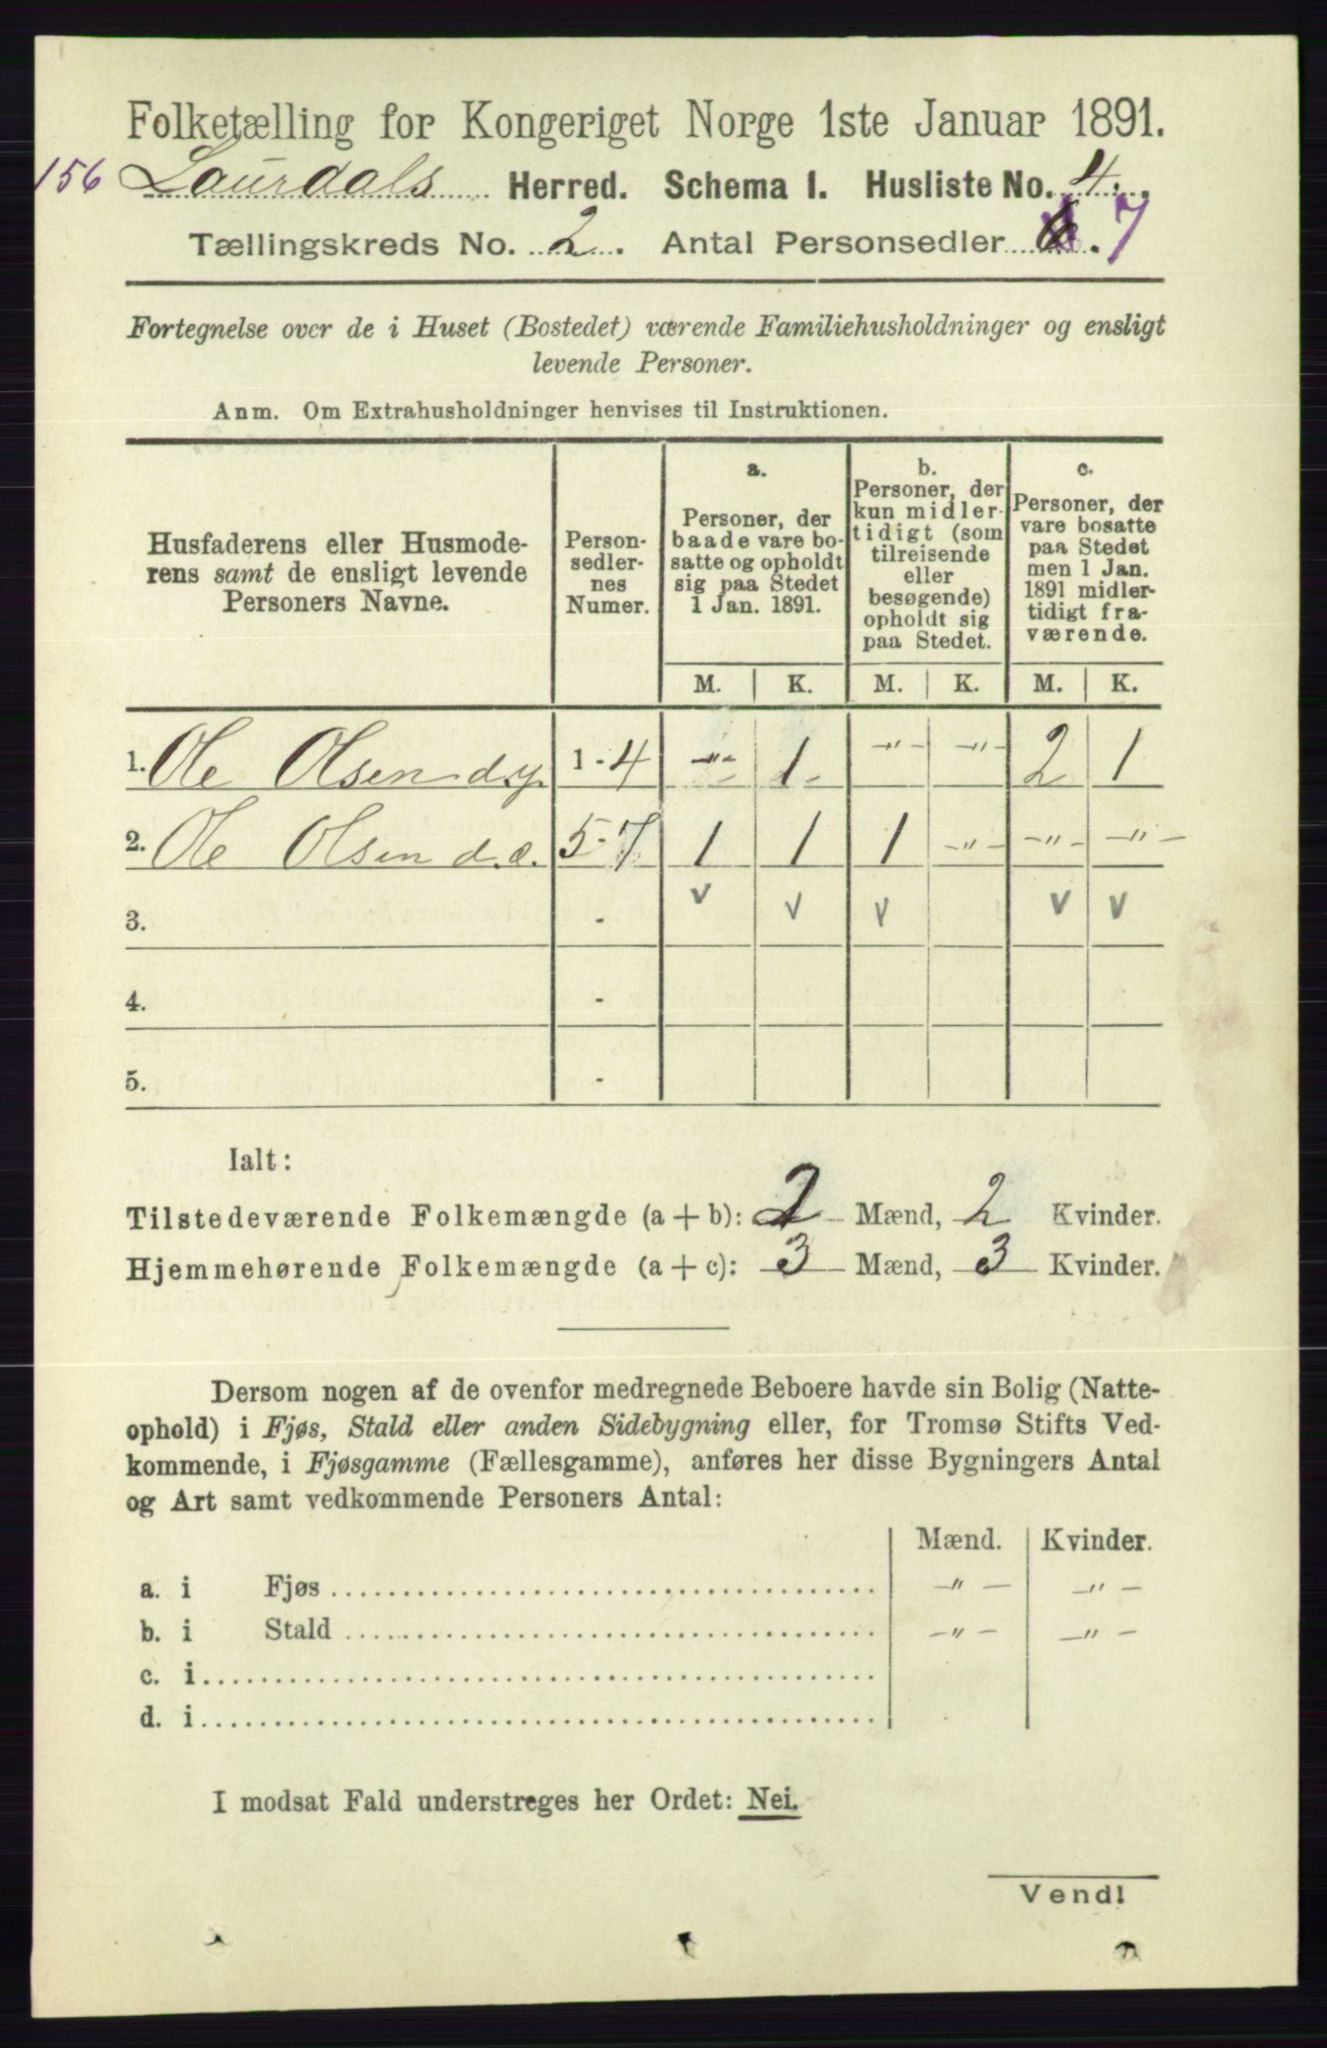 Folketælling for Kongeriget Norge 1ste Januar 1891.
156 Laurdals Herred. Schema 1. Husliste No. 4.
Tællingskreds No. 2. Antal Personsedler 7
Fortegnelse over de i Huset (Bostedet) værende Familiehusholdninger og ensligt
levende Personer.
Anm. Om Extrahusholdninger henvises til Instruktionen.
Husfaderens eller Husmode-
rens samt de ensligt levende
Personers Navne.
Person-
sedler-
nes
Numer.
a.
Personer, der
baade vare bo-
satte og opholdt
sig paa Stedet
1 Jan. 1891.
b.
Personer, der
kun midler-
tidigt (som
tilreisende
eller
besøgende)
opholdt sig
paa Stedet.
c.
Personer, der
vare bosatte
paa Stedet
men 1 Jan.
1891 midler-
tidigt fra-
værende.
M. K. M. K. M. K.
1. Ole Olsen d.y. 1-4 -"- 1 -"- -"- 2 1
2. Ole Olsen d.e. 5-7 1 1 1 -"- -"- -"-
3. - v v v v v
4. -
5. -
Ialt:
Tilstedeværende Folkemængde (a + b): 2 Mænd, 2 Kvinder.
Hjemmehørende Folkemængde (a + c): 3 Mænd, 3 Kvinder.
Dersom nogen af de ovenfor medregnede Beboere havde sin Bolig (Natte-
ophold) i Fjøs, Stald eller anden Sidebygning eller, for Tromsø Stifts Ved-
kommende, i Fjøsgamme (Fællesgamme), anføres her disse Bygningers Antal
og Art samt vedkommende Personers Antal:
Mænd. Kvinder.
a. i Fjøs -"- -"-
b. i Stald -"- -"-
c. i
d. i
I modsat Fald understreges her Ordet: Nei.
Vend!